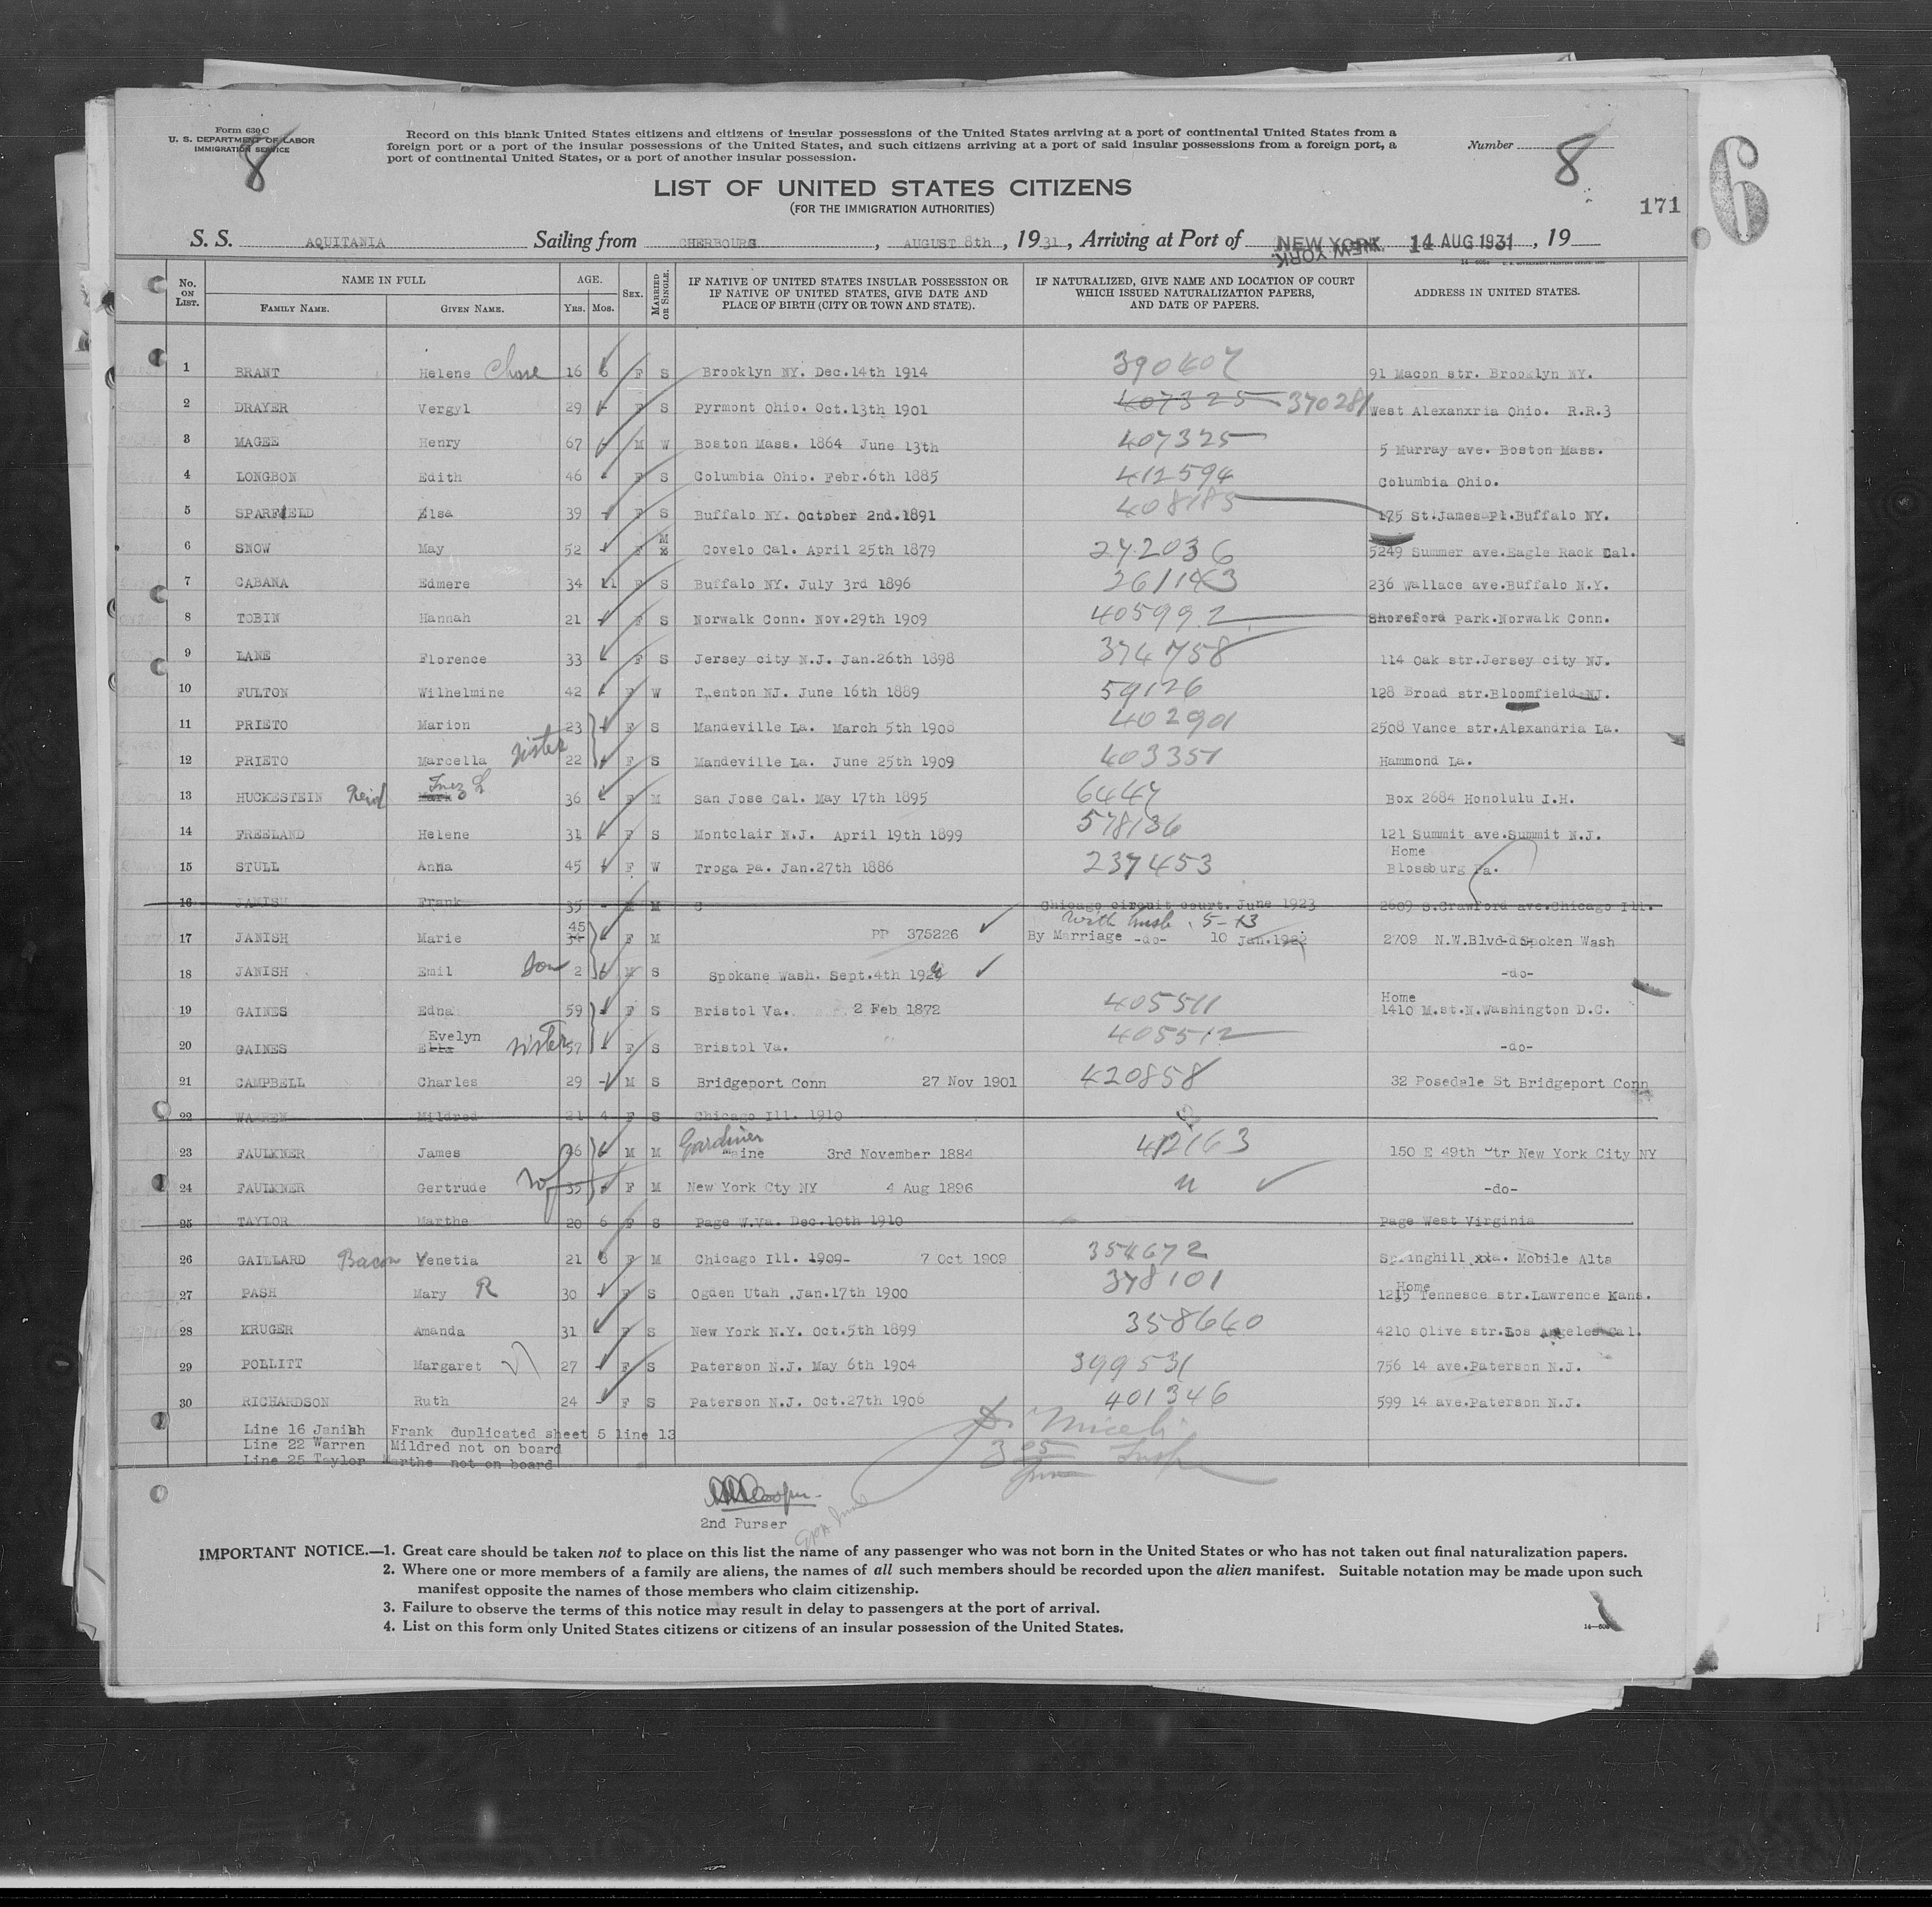 Form 630 C
U. S. DEPARTMENT OF LABOR
IMMIGRATION SERVICE
8
Record on this blank United States citizens and citizens of insular possessions of the United States arriving at a port of continental United States from a
foreign port or a port of the insular possessions of the United States, and such citizens arriving at a port of said insular possessions from a foreign port, a
port of continental United States, or a port of another insular possession.
Number 8
6
LIST OF UNITED STATES CITIZENS
(FOR THE IMMIGRATION AUTHORITIES)
171
S. S. AQUITANIA Sailing from CHERBOURG, AUGUST 8th, 1931, Arriving at Port of NEW YORK 14 AUG 1931, 19
No. ON LIST. NAME IN FULL FAMILY NAME. GIVEN NAME. AGE. YRS. MOS. SEX. MARRIED OR SINGLE. IF NATIVE OF UNITED STATES INSULAR POSSESSION OR IF NATIVE OF UNITED STATES, GIVE DATE AND PLACE OF BIRTH (CITY OR TOWN AND STATE). IF NATURALIZED, GIVE NAME AND LOCATION OF COURT WHICH ISSUED NATURALIZATION PAPERS, AND DATE OF PAPERS. ADDRESS IN UNITED STATES.
1 BRANT Helene Chase 16 6 F S Brooklyn NY. Dec.14th 1914 390407 91 Macon str. Brooklyn NY.
2 DRAYER Vergyl 29 - F S Pyrmont Ohio. Oct.13th 1901 407325 370281 West Alexanxria Ohio. R.R.3
3 MAGEE Henry 67 - M W Boston Mass. 1864 June 13th 407325 5 Murray ave. Boston Mass.
4 LONGBON Edith 46 - F S Columbia Ohio. Febr.6th 1885 412594 Columbia Ohio.
5 SPARFIELD Elsa 39 - F S Buffalo NY. October 2nd.1891 408185 175 St.James Pl.Buffalo NY.
6 SNOW May 52 - F M Covelo Cal. April 25th 1879 242036 5249 Summer ave.Eagle Rack Cal.
7 CABANA Edmere 34 11 F S Buffalo NY. July 3rd 1896 261143 236 Wallace ave.Buffalo N.Y.
8 TOBIN Hannah 21 - F S Norwalk Conn. Nov.29th 1909 405992 Shoreford Park.Norwalk Conn.
9 LANE Florence 33 - F S Jersey city N.J. Jan.26th 1898 374758 114 Oak str.Jersey city NJ.
10 FULTON Wilhelmine 42 - F W Trenton NJ. June 16th 1889 59126 128 Broad str.Bloomfield NJ.
11 PRIETO Marion 23 - F S Mandeville La. March 5th 1908 402901 2508 Vance str.Alexandria La.
12 PRIETO Marcella sister 22 - F S Mandeville La. June 25th 1909 403351 Hammond La.
13 HUCKESTEIN Reid Mark Inez L 36 - F M San Jose Cal. May 17th 1895 6447 Box 2684 Honolulu I.H.
14 FREELAND Helene 31 - F S Montclair N.J. April 19th 1899 578136 121 Summit ave.Summit N.J.
15 STULL Anna 45 - F W Troga Pa. Jan.27th 1886 237453 Home Blossburg Pa.
16 JANISH Frank 35 - M M C Chicago circuit court. June 1923 2609 S.Crawford ave.Chicago Ill.
17 JANISH Marie 45 34 F M PP 375226 By Marriage -do- 10 Jan.1922 2709 N.W.Blvd-d Spoken Wash
18 JANISH Emil son 2 6 M S Spokane Wash. Sept.4th 192 -do-
19 GAINES Edna 59 - F S Bristol Va. 2 Feb 1872 405511 Home 1410 M.st.N.Washington D.C.
20 GAINES Evelyn Ella sister 57 - F S Bristol Va. 405512 -do-
21 CAMPBELL Charles 29 - M S Bridgeport Conn 27 Nov 1901 420858 32 Posedale St Bridgeport Conn
22 WARREN Mildred 21 4 F S Chicago Ill. 1910
23 FAULKNER James 46 M M Gardiner Maine 3rd November 1884 412163 150 E 49th Str New York City NY
24 FAULKNER Gertrude wf 35 - F M New York Cty NY 4 Aug 1896 " -do-
25 TAYLOR Marthe 20 6 F S Page W.Va. Dec.10th 1910 Page West Virginia
26 GAILLARD Bacon Venetia 21 8 F M Chicago Ill. 1909- 7 Oct 1909 354672 Springhill xxa. Mobile Alta
27 PASH Mary R 30 - F S Ogden Utah .Jan.17th 1900 378101 Home 1215 Tennesce str.Lawrence Kans.
28 KRUGER Amanda 31 F S New York N.Y. Oct.5th 1899 358640 4210 Olive str.Los Angeles Cal.
29 POLLITT Margaret 27 - F S Paterson N.J. May 6th 1904 399531 756 14 ave.Paterson N.J.
30 RICHARDSON Ruth 24 - F S Paterson N.J. Oct.27th 1906 401346 599 14 ave.Paterson N.J.
Line 16 Janish Frank duplicated sheet 5 line 13
Line 22 Warren Mildred not on board
Line 25 Taylor Marthe not on board
2nd Purser
IMPORTANT NOTICE.—1. Great care should be taken not to place on this list the name of any passenger who was not born in the United States or who has not taken out final naturalization papers.
2. Where one or more members of a family are aliens, the names of all such members should be recorded upon the alien manifest. Suitable notation may be made upon such
manifest opposite the names of those members who claim citizenship.
3. Failure to observe the terms of this notice may result in delay to passengers at the port of arrival.
4. List on this form only United States citizens or citizens of an insular possession of the United States.